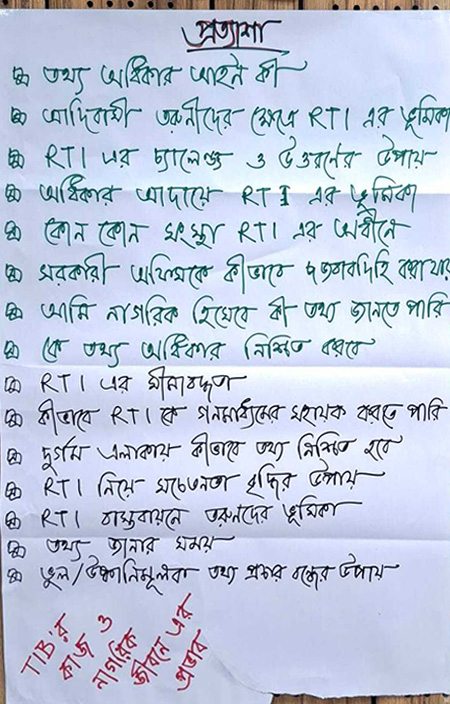 প্রত্যাশা
তথ্য অধিকার আইন কী
আদিবাসী তরুনীদের ক্ষেত্রে RTI এর ভূমিকা
RTI এর চ্যালেঞ্জ ও উত্তরণের উপায়
অধিকার আদায়ে RTI এর ভূমিকা
কোন কোন সংস্থা RTI এর অধীনে
সরকারী অফিসকে কীভাবে জবাবদিহি করা যায়
আমি নাগরিক হিসেবে কী তথ্য জানতে পারি
কে তথ্য অধিকার নিশ্চিত করবে
RTI এর সীমাবদ্ধতা
কীভাবে RTI কে গনমাধ্যমের সহায়ক করতে পারি
দুর্গম এলাকায় কীভাবে তথ্য নিশ্চিত হবে
RTI নিয়ে সচেতনতা বৃদ্ধির উপায়
RTI বাস্তবায়নে তরুনদের ভূমিকা
তথ্য জানার সময়
ভুল/উস্কানিমূলক তথ্য প্রচার বন্ধের উপায়
TIB'র
কাজ ও
নাগরিক
জীবনে এর
প্রভাব